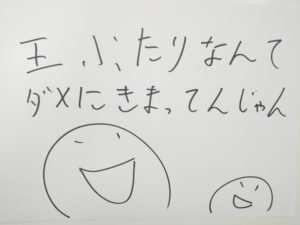 王ふたりなんて
ダメにきまってんじゃん